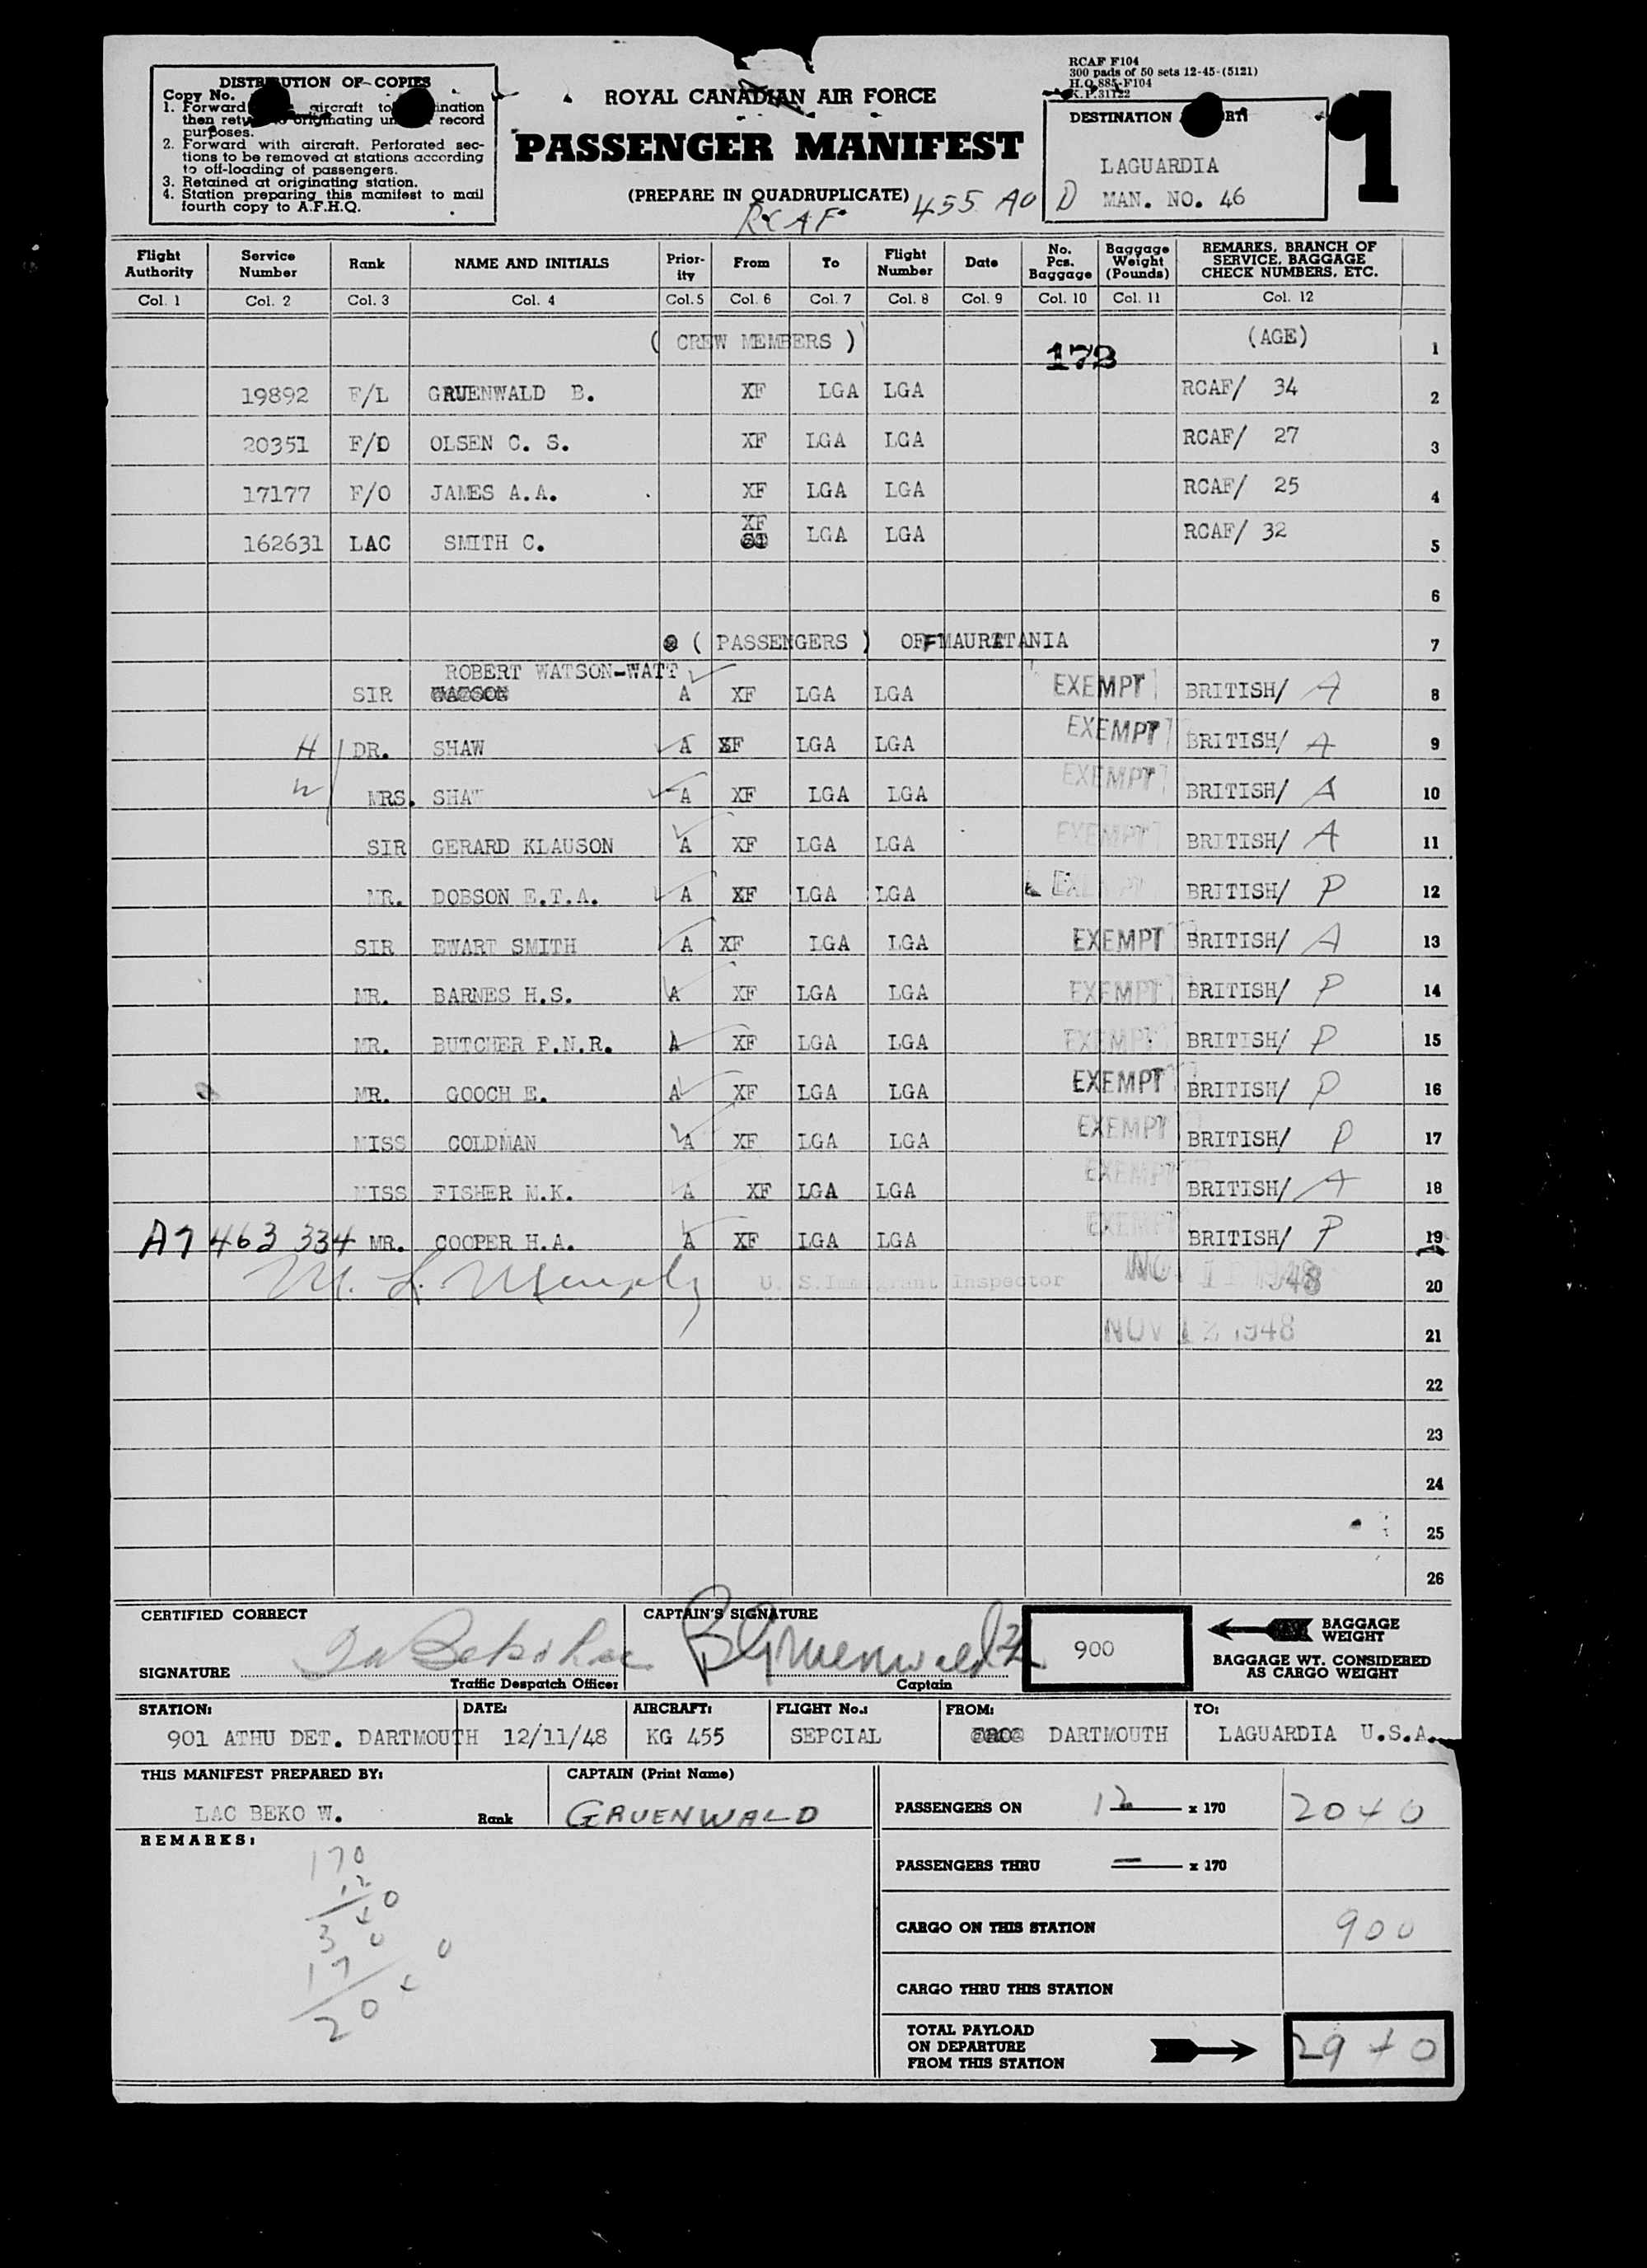 DISTRIBUTION OF COPIES
Copy No.
1. Forward aircraft to
then originating record
purposes.
2. Forward with aircraft. Perforated sec-
tions to be removed at stations according
to off-loading of passengers.
3. Retained at originating station.
4. Station preparing this manifest to mail
fourth copy to A.F.H.Q.
ROYAL CANADIAN AIR FORCE
PASSENGER MANIFEST
(PREPARE IN QUADRUPLICATE)
RCAF 455 AO D
RCAF F104
300 pads of 50 sets 12-45-(5121)
H.Q. 885-F104
K.P. 31122
DESTINATION
LAGUARDIA
MAN. NO. 46
1
Flight Authority Service Number Rank NAME AND INITIALS Prior-ity From To Flight Number Date No. Pcs. Baggage Baggage Weight (Pounds) REMARKS, BRANCH OF SERVICE, BAGGAGE CHECK NUMBERS, ETC.
Col. 1 Col. 2 Col. 3 Col. 4 Col. 5 Col. 6 Col. 7 Col. 8 Col. 9 Col. 10 Col. 11 Col. 12
( CREW MEMBERS ) 172 (AGE) 1
19892 F/L GRUENWALD B. XF LGA LGA RCAF/ 34 2
20351 F/O OLSEN C. S. XF LGA LGA RCAF/ 27 3
17177 F/O JAMES A.A. XF LGA LGA RCAF/ 25 4
162631 LAC SMITH C. XF LGA LGA RCAF/ 32 5
6
( PASSENGERS ) OFF MAURITANIA 7
SIR ROBERT WATSON-WATT A XF LGA LGA EXEMPT BRITISH/ A 8
H DR. SHAW A XF LGA LGA EXEMPT BRITISH/ A 9
W MRS. SHAW A XF LGA LGA EXEMPT BRITISH/ A 10
SIR GERARD KLAUSON A XF LGA LGA EXEMPT BRITISH/ A 11
MR. DOBSON E.T.A. A XF LGA LGA EXEMPT BRITISH/ P 12
SIR EWART SMITH A XF LGA LGA EXEMPT BRITISH/ A 13
MR. BARNES H.S. A XF LGA LGA EXEMPT BRITISH/ P 14
MR. BUTCHER P.N.R. A XF LGA LGA EXEMPT BRITISH/ P 15
MR. GOOCH E. A XF LGA LGA EXEMPT BRITISH/ P 16
MISS GOLDMAN A XF LGA LGA EXEMPT BRITISH/ P 17
MISS FISHER M.K. A XF LGA LGA EXEMPT BRITISH/ A 18
A7 463 334 MR. COOPER H.A. A XF LGA LGA EXEMPT BRITISH/ P 19
M. L. U. S. Immigrant Inspector 1948 20
NOV 12 1948 21
22
23
24
25
26
CERTIFIED CORRECT
SIGNATURE
Traffic Despatch Officer
CAPTAIN'S SIGNATURE
B Gruenwald F/L
Captain
900
BAGGAGE WEIGHT
BAGGAGE WT. CONSIDERED AS CARGO WEIGHT
STATION: DATE: AIRCRAFT: FLIGHT No.: FROM: TO:
901 ATHU DET. DARTMOUTH 12/11/48 KG 455 SEPCIAL DARTMOUTH LAGUARDIA U.S.A.
THIS MANIFEST PREPARED BY:
LAC BEKO W. Rank
CAPTAIN (Print Name)
GRUENWALD
REMARKS:
170
12
340
170
2040
PASSENGERS ON 12 x 170 2040
PASSENGERS THRU — x 170
CARGO ON THIS STATION 900
CARGO THRU THIS STATION
TOTAL PAYLOAD
ON DEPARTURE
FROM THIS STATION
2940